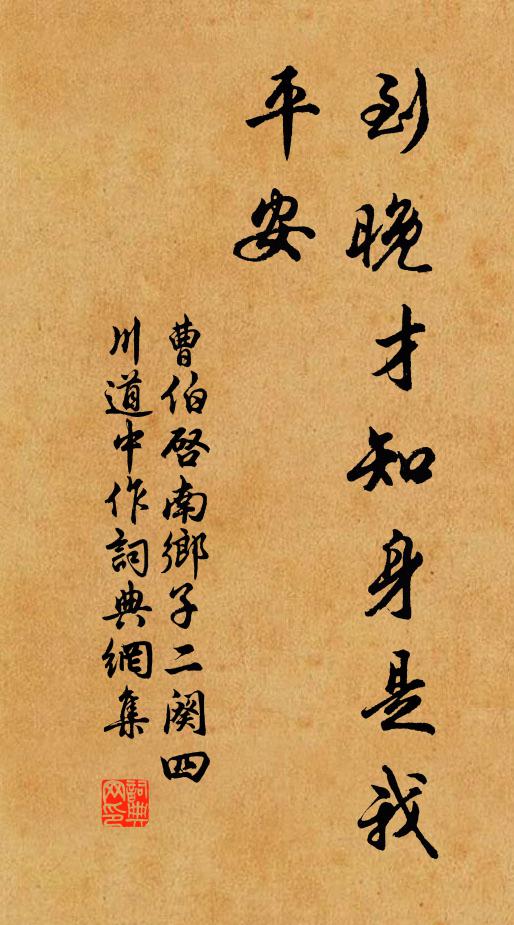 到晚才知身是我
平安
曹伯啓南鄉子二闋四
川道中作詞典網集
詞典
网印